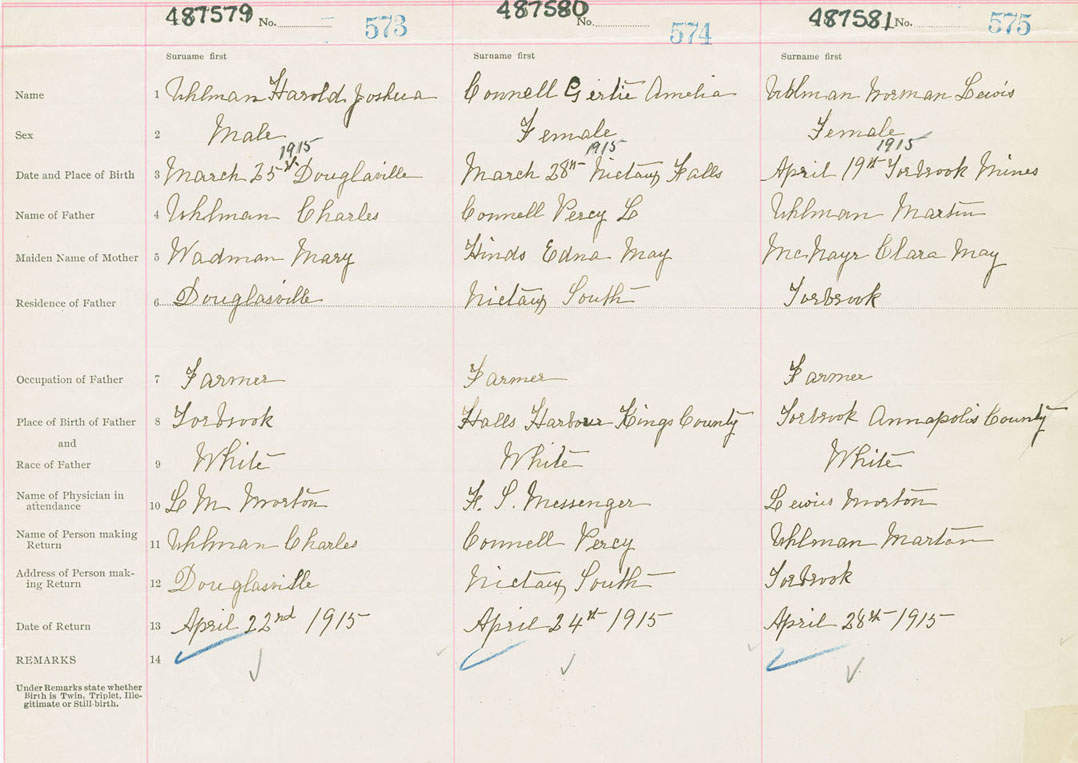 487579 No. 573 487580 No. 574 487581 No. 575
Surname first Surname first Surname first
Name 1 Uhlman Harold Joshua Connell Gertie Amelia Uhlman Norman Lewis
Sex 2 Male Female Female
1915 1915 1915
Date and Place of Birth 3 March 25th Douglaville March 28th Nictaux Falls April 19th Torbrook Mines
Name of Father 4 Uhlman Charles Connell Percy L Uhlman Martin
Maiden Name of Mother 5 Wadman Mary Hinds Edna May McNayr Clara May
Residence of Father 6 Douglasville Nictaux South Torbrook
Occupation of Father 7 Farmer Farmer Farmer
Place of Birth of Father 8 Torbrook Halls Harbour Kings County Torbrook Annapolis County
and
Race of Father 9 White White White
Name of Physician in
attendance 10 L M Morton F. S. Messenger Lewius Morton
Name of Person making
Return 11 Uhlman Charles Connell Percy Uhlman Marton
Address of Person mak-
ing Return 12 Douglasville Nictaux South Torbrook
Date of Return 13 April 22nd 1915 April 24th 1915 April 28th 1915
REMARKS 14
Under Remarks state whether
Birth is Twin, Triplet, Ille-
gitimate or Still-birth.